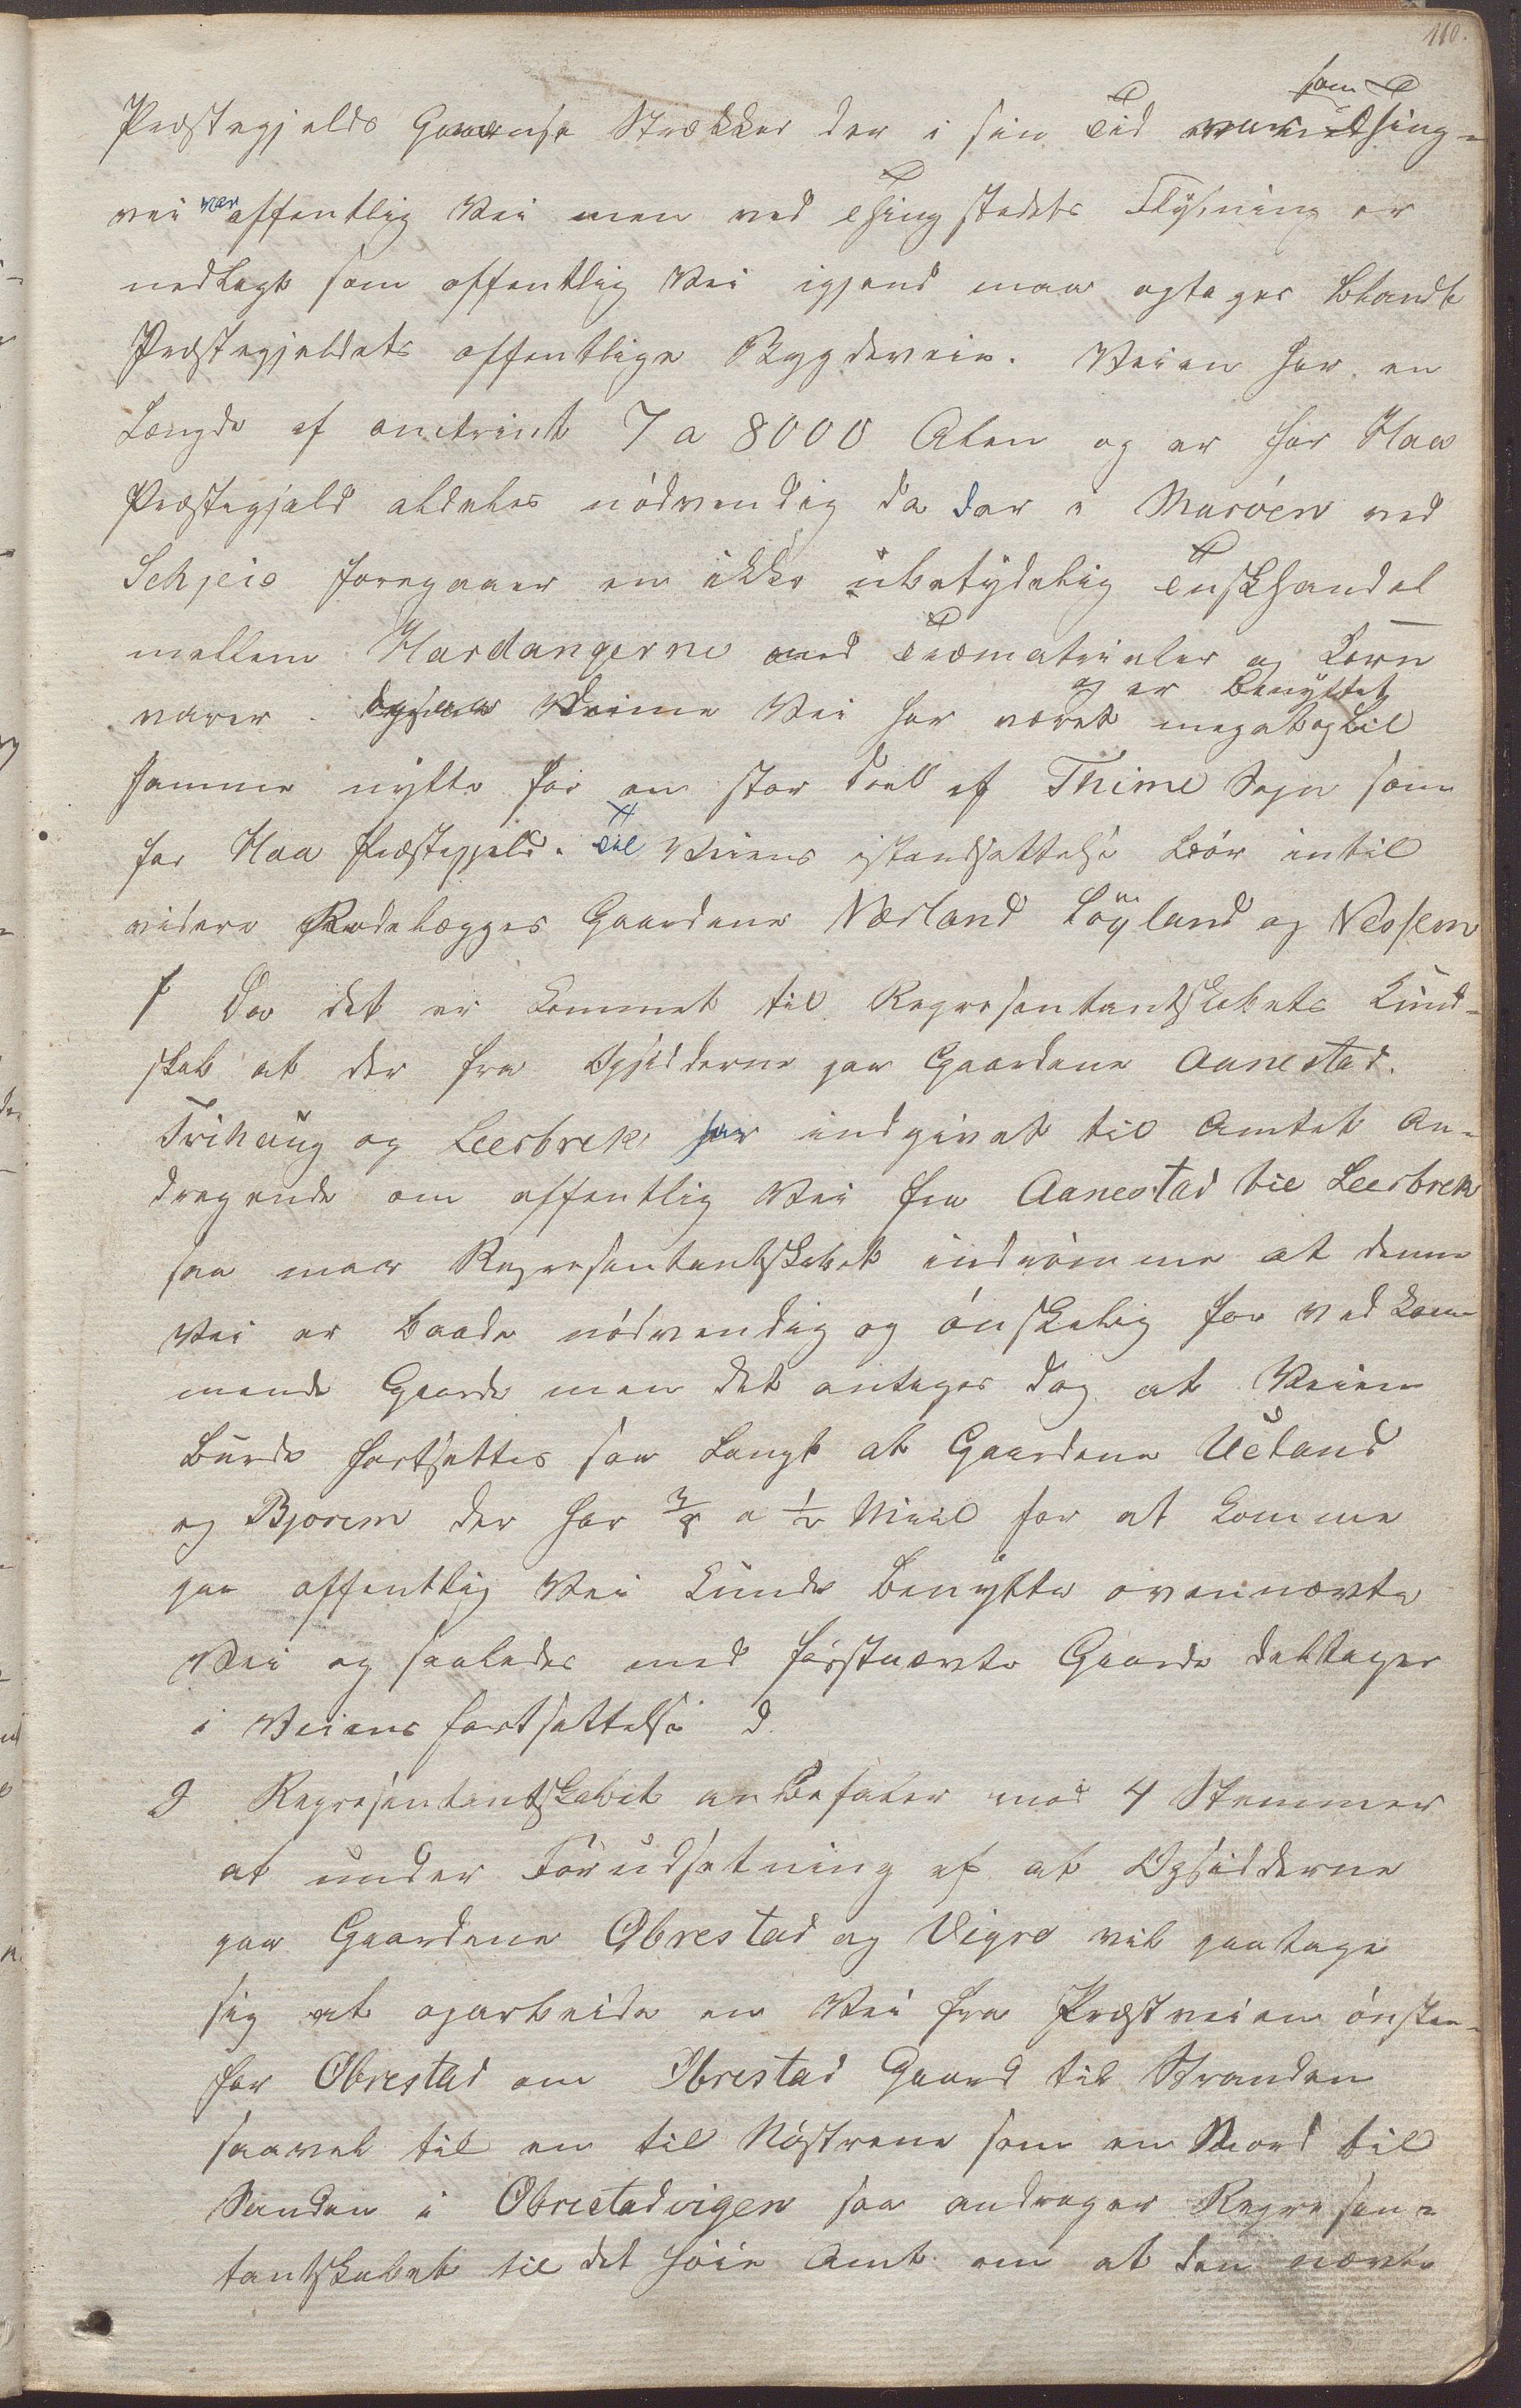 110.
Præstegjelds Grænse Strækker der i sin Tid som Thing-
vei var offentlig Vei men ved Thingstedets Flytning er
nedlagt som offentlig Vei igjend maa optages blandt
Præstegjeldets offentlige Bygdeveie. Veien har en
Længde af omtrint 7 a 8000 Alen og er for Haa
Præstegjeld aldeles nödvendig da der i Madöen ved
Schjeie foregaaer en ikke ubetydelig Tuskhandel
mellem Hardangerne med Træmatrialer og Korn
varer. Denne Vei har været meget og er benyttet og til
samme nytte for en stor Deel af Thime Sogn som
for Haa Præstegjeld. Til Veiens istandsættelse bör intil
videre Rodelægges Gaardene Nærland Löyland og Nessem
f Da det er kommet til Representantskabets Kund-
skab at der fra Opsidderne paa Gaardene Aanestad.
Trihaug og Leersbrek har indgivet til Amtet An-
dragende om offentlig Vei fra Aanestad til Leersbrek
saa maa Representantskabet indrömme at denne
Vei er baade nödvendig og önskelig for vedkom-
mende Gaarde men det antages dog at Veien
burde fortsættes saa langt at Gaardene Ueland
og Bjorem der har 3/8 a 1/2 Miil for at komme
paa offentlig Vei kunde benytte ovennævnte
Vei og saaledes med förstnævnte Gaarde deltager
i Veiens fortsættelse
g Representantskabet anbefaler mod 4 Stemmer
at under Forudsætning af at Opsidderne
paa Gaardene Obrestad og Vigre vil paatage
sig at oparbeide en Vei fra Præstveien östen-
for Obrestad om Obrestad Gaard til Stranden
saavel til en til Nöstrene som en Nord til
Sanden i Obrestadvigen saa andrager Represen-
tantskabet til det höie Amt om at den nævnte